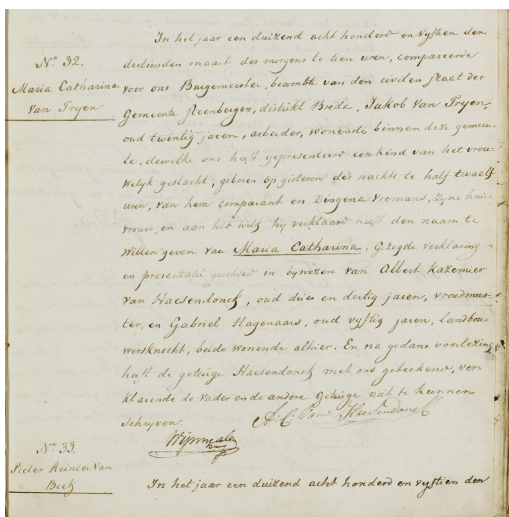 In het jaar een duizend acht honderd en vyftien den
N.º 32.
dertienden maart des morgens te tien uren, compareerde
Maria Catharina
Van Tryen
voor ons Burgemeester, beambte van den civilen staat der
Gemeente Steenbergen, distrikt Breda, Jakob Van Tryen,
oud twintig jaren, arbeider, wonende binnen deze gemeen-
te, dewelke ons heeft gepresenteerd een kind van het vrou-
welyk geslacht, geboren op gisteren des nachts te half twaalf
uren, van hem comparant en Dingena Vromans, zyne huis-
vrouw, en aan het welk hy verklaard heeft den naam te
willen geven van Maria Catharina. Gezegde verklaring
en presentatie geschied in bywezen van Albert Kazemier
Van Haesendonck, oud drie en dertig jaren, vroedmees-
ter, en Gabriel Hagenaars, oud vyftig jaren, landbou-
wersknecht, beide wonende alhier. En na gedane voorlezing
heeft de getuige Haesendonck met ons geteekend, ver-
klarende de vader en de andere getuige niet te kunnen
schryven.
A. C. Van Haesendonck
N.º 33.
Pieter Reinier Van
Beek
In het jaar een duizend acht honderd en vyftien den